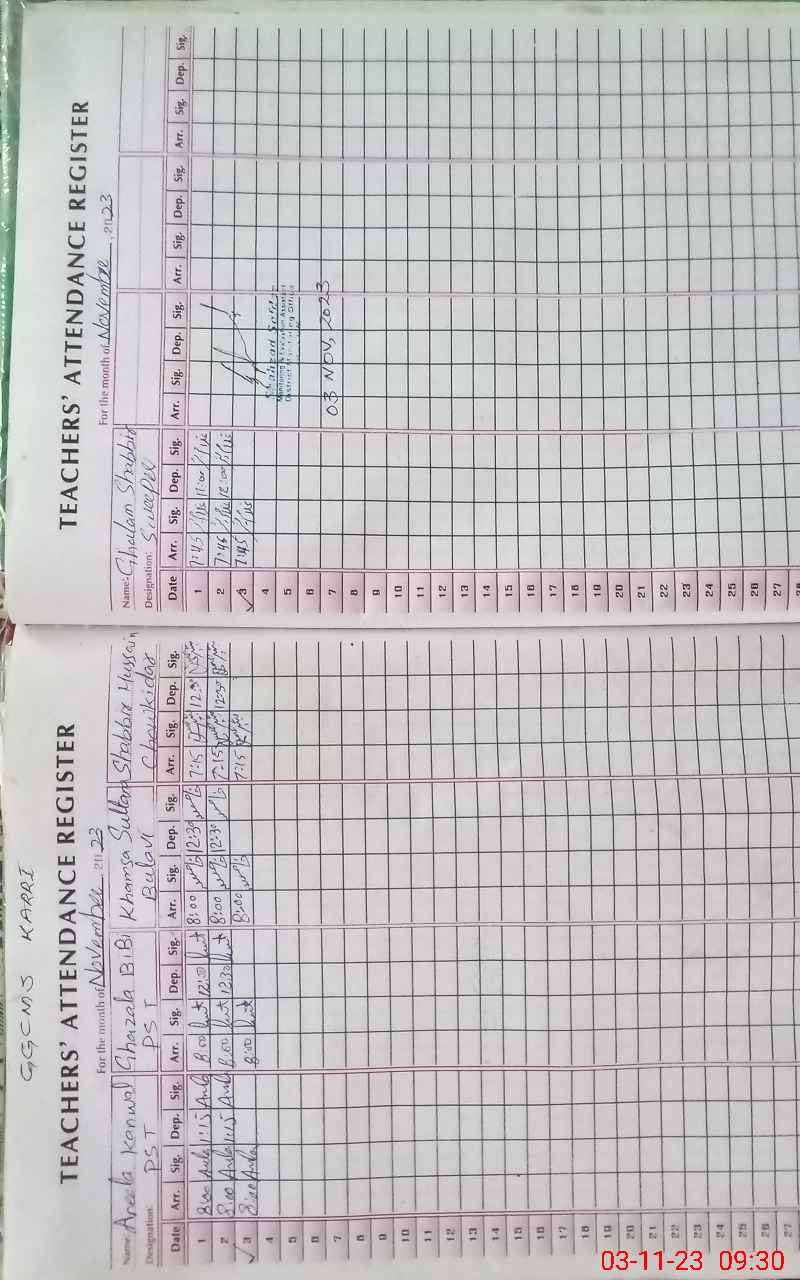 GGCMS KARRI
TEACHERS' ATTENDANCE REGISTER
For the month of November 2023
Name: Aneela Kanwal Ghazala BiBi Khamsa Sultam Shabbir Hussain
Designation: PST PST Bulavi Chowkidar
Date Arr. Sig. Dep. Sig. Arr. Sig. Dep. Sig. Arr. Sig. Dep. Sig. Arr. Sig. Dep. Sig.
1 8:00 1:15 8:00 12:30 8:00 12:30 7:15 12:30
2 8:00 1:15 8:00 12:30 8:00 12:30 7:15 12:30
3 8:00 8:00 8:00 7:15
4
5
6
7
8
9
10
11
12
13
14
15
16
17
18
19
20
21
22
23
24
25
26
27
TEACHERS' ATTENDANCE REGISTER
For the month of Novembre, 2023
Name: Ghulam Shabbir
Designation: Sweeper
Date Arr. Sig. Dep. Sig. Arr. Sig. Dep. Sig. Arr. Sig. Dep. Sig. Arr. Sig. Dep. Sig.
1 7:45 11:00
2 7:45 12:00
3 7:45
4
5
6
7
8
9
10
11
12
13
14
15
16
17
18
19
20
21
22
23
24
25
26
27
28
Monitoring & Evaluation Assistant
District Monitoring Officer
03 NOV, 2023
03-11-23 09:30